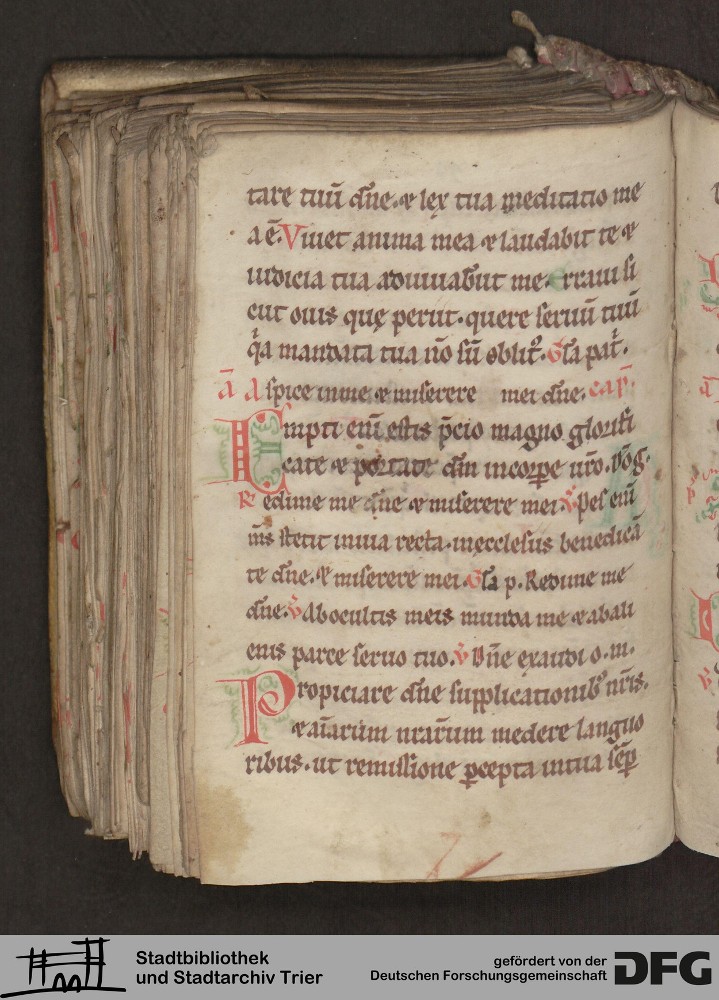 tare tuū dn̄e. & lex tua meditatio me
a ē. Viuet anima mea & laudabit te &
iudicia tua adiuuabūt me. Erraui si
cut ouis quę periit. quere seruū tuū
q̇a mandata tua n̄o sū oblit⁹. Gl̄a pat̄.
ā Aspice in me & miserere mei dn̄e. cap̄.
Empti eni͞ estis p̄cio magno glorifi
cate & portate dm̄ in corpore ur̄o. Dōg.
℟ Redime me dn̄e & miserere mei. ℣ Pes eni͞
m̄s stetit in uia recta. in ęcclesiis benedicā
te dn̄e. & miserere mei. Gl̄a p. Redime me
dn̄e. ℣ Ab ocultis meis munda me & ab ali
enis parce seruo tuo. ℣ Dn̄e exaudi o. m.
Propiciare dn̄e supplicationib⁹ nr̄is.
& aīarum nrārum medere languo
ribus. ut remissione ꝑcepta in tua sēꝑ
Stadtbibliothek
und Stadtarchiv Trier
gefördert von der
Deutschen Forschungsgemeinschaft
DFG